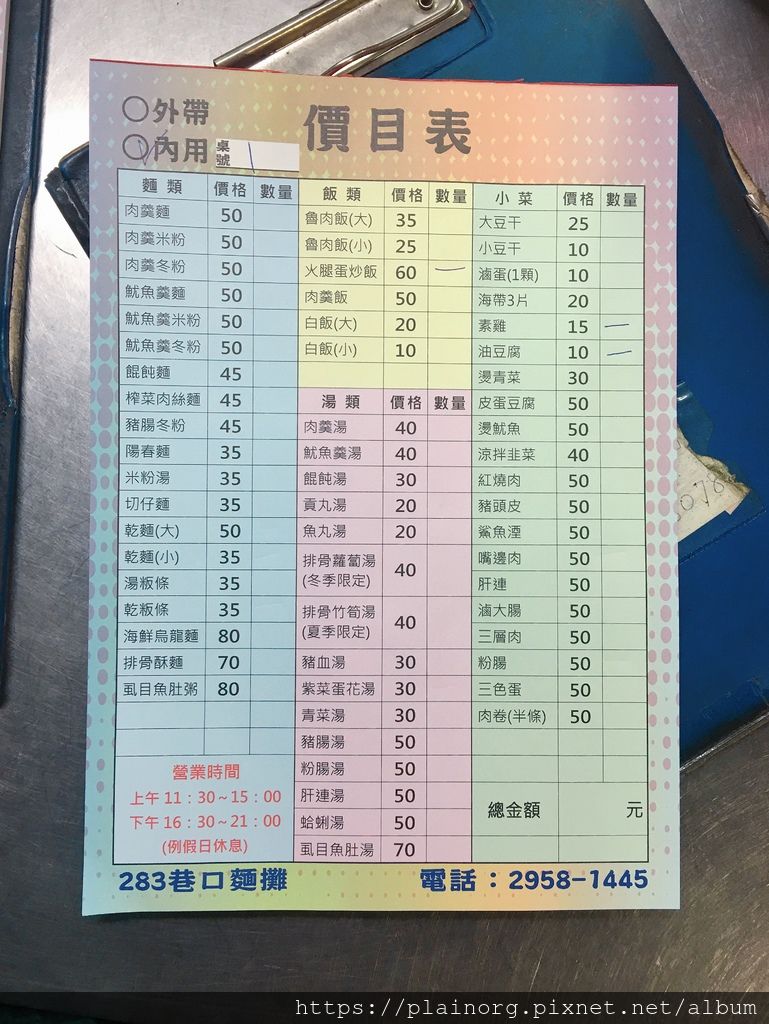 ○外帶
○內用 桌號 1
價目表
麵類 價格 數量
肉羹麵 50
肉羹米粉 50
肉羹冬粉 50
魷魚羹麵 50
魷魚羹米粉 50
魷魚羹冬粉 50
餛飩麵 45
榨菜肉絲麵 45
豬腸冬粉 45
陽春麵 35
米粉湯 35
切仔麵 35
乾麵(大) 50
乾麵(小) 35
湯粄條 35
乾粄條 35
海鮮烏龍麵 80
排骨酥麵 70
虱目魚肚粥 80
營業時間
上午 11：30～15：00
下午 16：30～21：00
(例假日休息)
飯類 價格 數量
魯肉飯(大) 35
魯肉飯(小) 25
火腿蛋炒飯 60 一
肉羹飯 50
白飯(大) 20
白飯(小) 10
湯類 價格 數量
肉羹湯 40
魷魚羹湯 40
餛飩湯 30
貢丸湯 20
魚丸湯 20
排骨蘿蔔湯 40
(冬季限定)
排骨竹筍湯 40
(夏季限定)
豬血湯 30
紫菜蛋花湯 30
青菜湯 30
豬腸湯 50
粉腸湯 50
肝連湯 50
蛤蜊湯 50
虱目魚肚湯 70
小菜 價格 數量
大豆干 25
小豆干 10
滷蛋(1顆) 10
海帶3片 20
素雞 15 一
油豆腐 10 一
燙青菜 30
皮蛋豆腐 50
燙魷魚 50
涼拌韭菜 40
紅燒肉 50
豬頭皮 50
鯊魚湮 50
嘴邊肉 50
肝連 50
滷大腸 50
三層肉 50
粉腸 50
三色蛋 50
肉卷(半條) 50
總金額 元
283巷口麵攤 電話：2958-1445
https://plainorg.pixnet.net/album